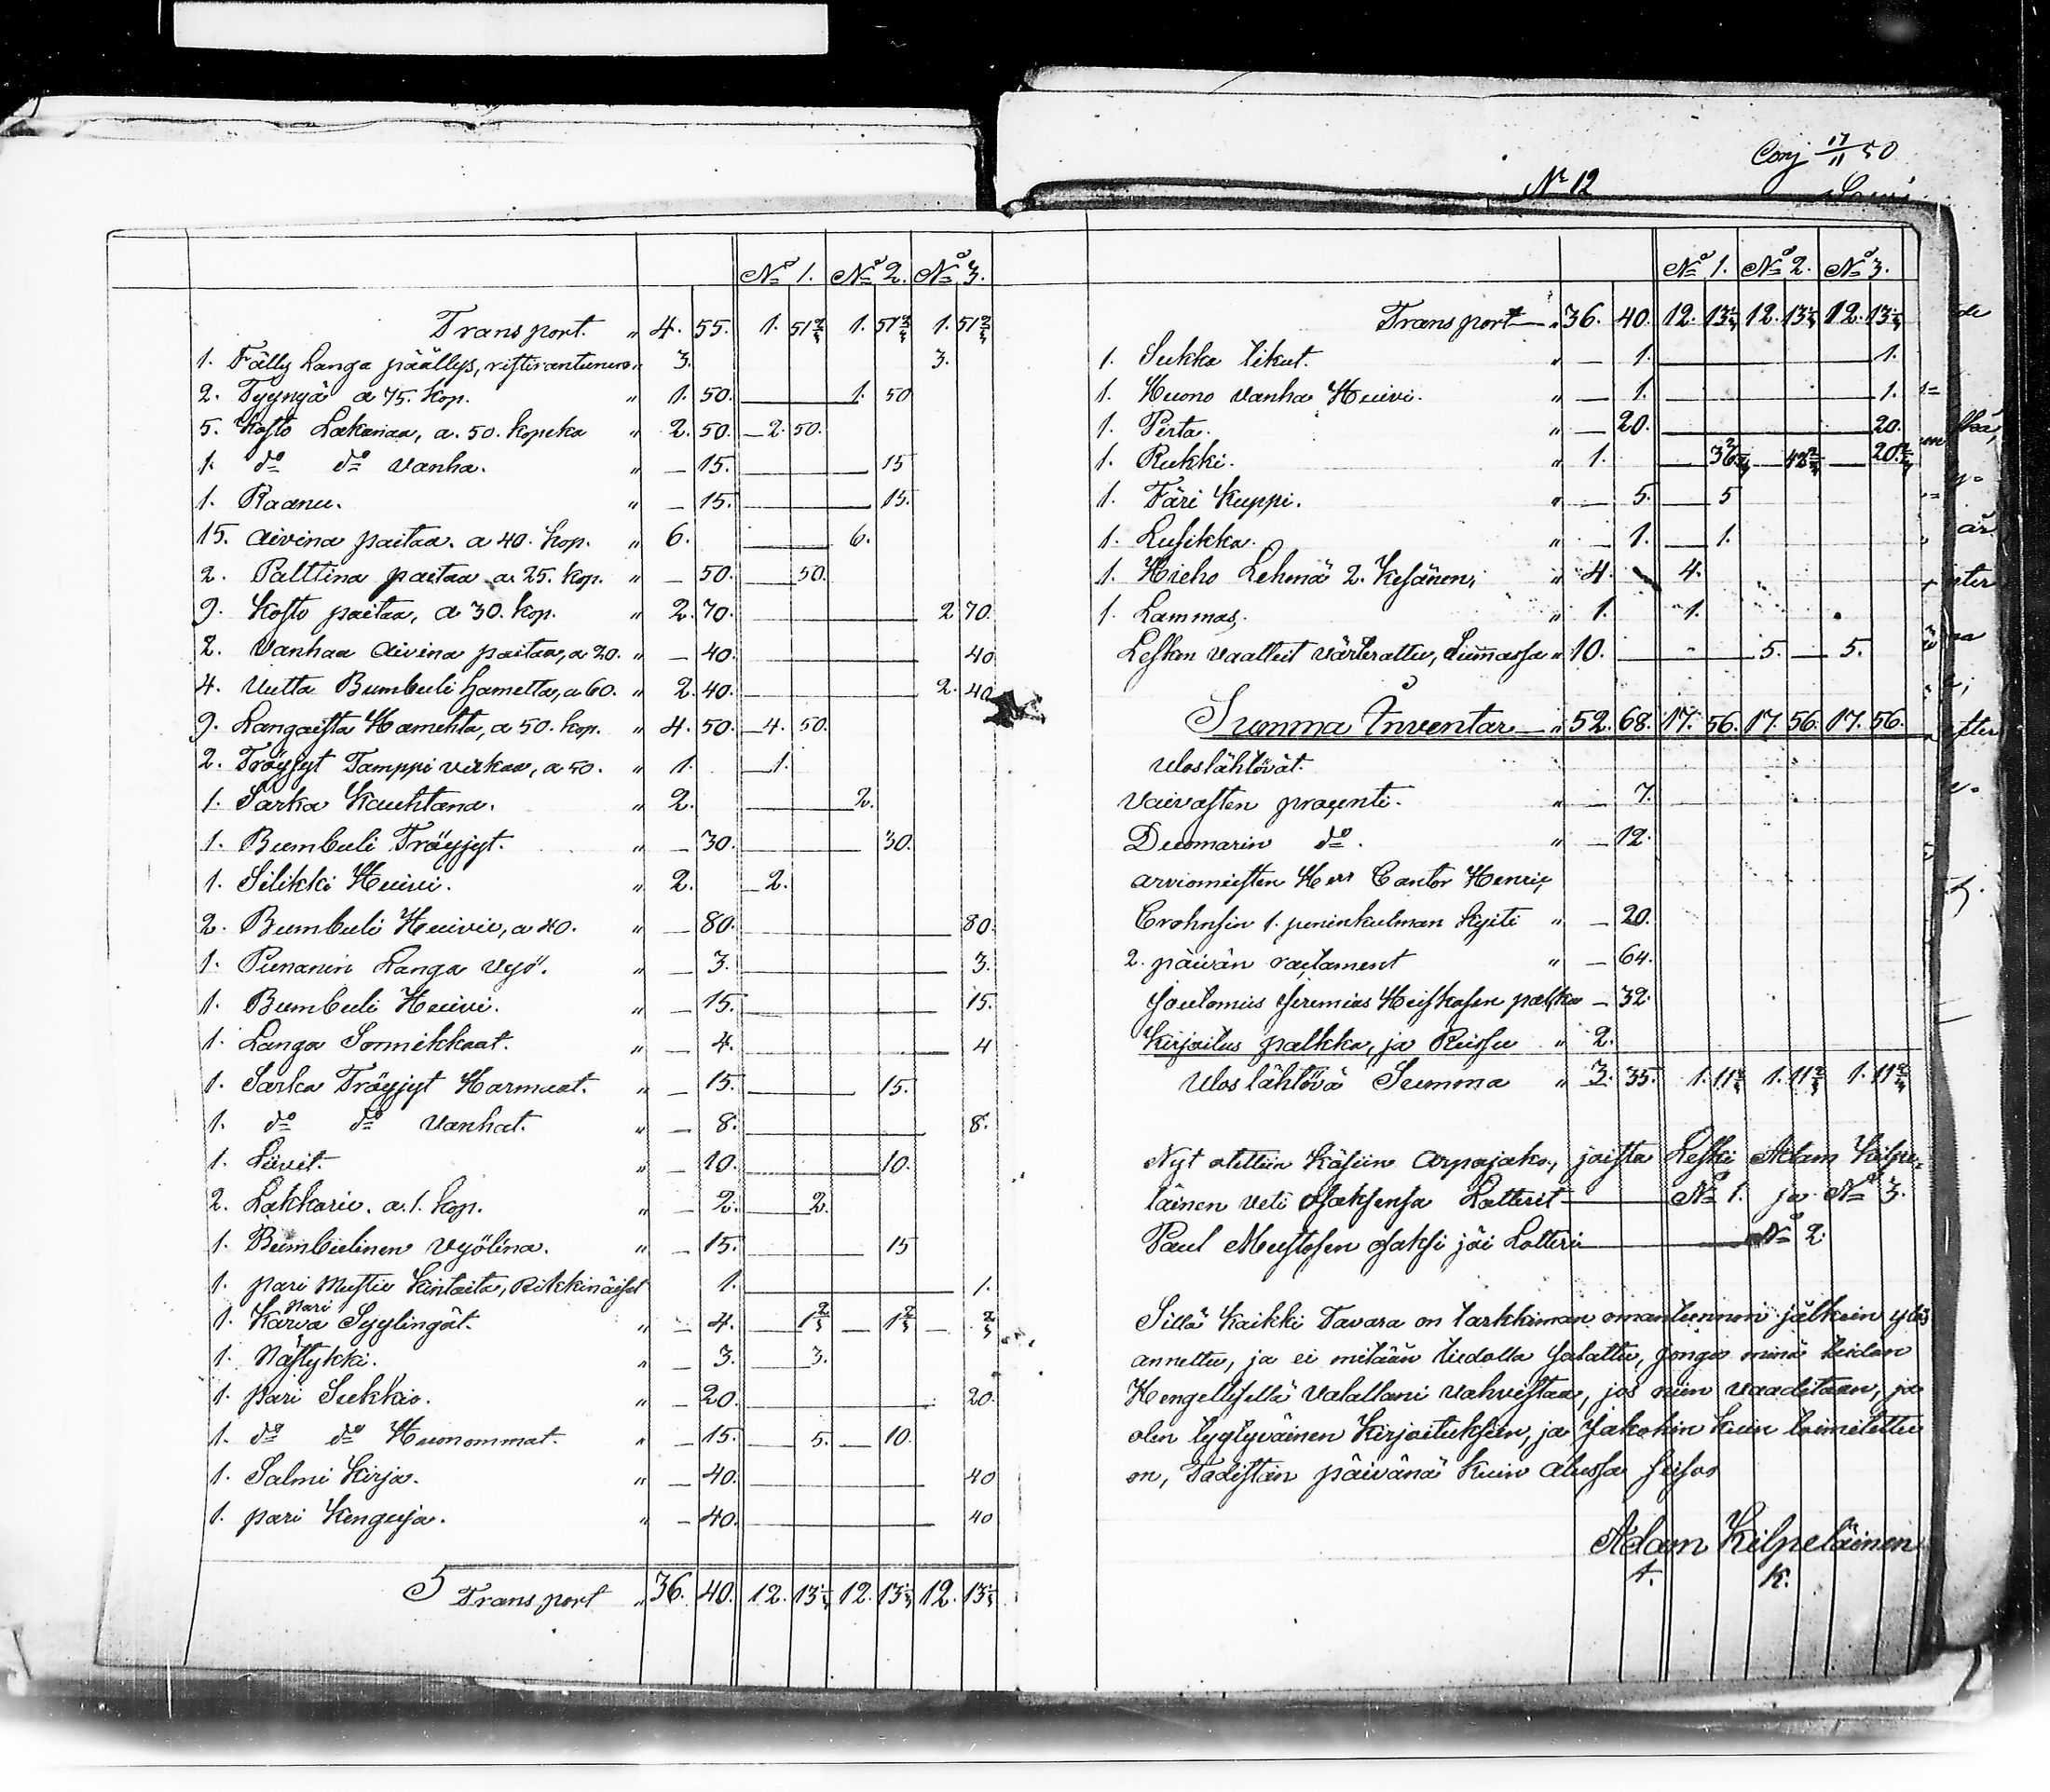 Conj 17/11 50
Nr 12
No 1. No 2. No 3.
Transport. " 4. 55. 1. 51 2/3 1. 51 2/3 1. 51 2/3
1. Fälly Langa päällys, " 3. 3.
2. Tyynyä a 75. Kop. " 1. 50. 1. 50
5. Kosto Lakanaa, a. 50. kopeka " 2. 50. 2. 50.
1. do do Vanha. " 15. 15
1. Raanu. " 15. 15.
15. Aivina paitaa. a 40. kop. " 6. 6.
2. Palttina paitaa a. 25. kop. " 50. 50.
9. Kosto paitaa, a 30. kop. " 2. 70. 2 70.
2. Vanhaa Aivina paitaa, a 20. " 40. 40
4. Uutta Bumbuli hametta, a 60. " 2. 40. 2. 40
9. Langaista Hamehta, a 50. kop. " 4. 50. 4. 50.
2. Tröyjyt Tamppi verkaa, a 50. " 1. 1.
1. Sarka Kauhtana. " 2. 2.
1. Bumbuli Tröyjyt. " 30. 30.
1. Silikki Huivi. " 2. 2.
2. Bumbuli Huivii, a 40. " 80. 80.
1. Punanin Langa Vyö. " 3. 3.
1. Bumbuli Huivi. " 15. 15.
1. Langa Sormikkaat. " 4. 4
1. Sarka Tröyjyt Harmaat. " 15. 15.
1. do do Vanhat. " 8. 8.
1. Liivit. " 10. 10.
2. Lakkarii. a. 1. kop. " 2. 2.
1. Bumbulinen Vyölina. " 15. 15
1. pari Mustia Kintaita, Rikkinäiset 1. 1.
1. pari Karva Syylingät. " 4. 1 2/3 1 2/3 2/3
1. Nästykki. " 3. 3.
1. pari Sukkia. " 20. 20.
1. do do Huonommat. " 15. 5. 10.
1. Salmi Kirja. " 40. 40
1. pari Kenguja. " 40. 40
Transport " 36. 40. 12. 13 1/3 12. 13 1/3 12. 13 1/3
No 1. No 2. No 3.
Transport " 36. 40. 12. 13 1/3 12. 13 1/3 12. 13 1/3
1. Sukka tikut. " 1. 1.
1. Huono vanha Huivi. " 1. 1.
1. Pirta. " 20. 20.
1. Rukki. " 1. 36 2/3 42 2/3 20 2/3
1. Färi Kuppi. " 5. 5
1. Lusikka. " 1. 1.
1. Hieho Lehmä 2. Kesänen, " 4. 4.
1. Lammas, " 1. 1.
Lesken vaatteet värderattu, Summassa " 10. 5. 5.
Summa Inventar " 52. 68. 17. 56. 17. 56. 17. 56.
Uloslähtövät.
Vaivasten procenti. " 7.
Duomarin do. " 12.
arviomiesten Herr Cantor Henric
Crohnsin 1. peninkulman kyiti " 20.
2. päivän ractament " 64.
Joutomies Jeremias Heiskasen palkka 32.
Kirjoitus palkka, ja Ruissu " 2.
Ulos lähtövä Summa " 3. 35. 1. 11 2/3 1. 11 2/3 1. 11 2/3
Nyt otettiin Käsiin Arpajako, joista Leski Adam Kilpe-
läinen veti osaksensa Lotterit No 1. ja No 3.
Paul Mustosen osaksi jäi Lotteri No 2.
Sillä Kaikki Tavara on tarkkiman omantunnon jälkein ylös
annettu, ja ei mitään tiedolla salattu, jonga minä teidän
Hengellisellä Valallani vahvistaa, jos niin vaaditaan, ja
olen tyytyväinen Kirjoituksiin, ja Jakohin kuin toimitettu
on, Tadistan päivänä kuin alussa seisoo
Adam Kilpeläinen
A. K.